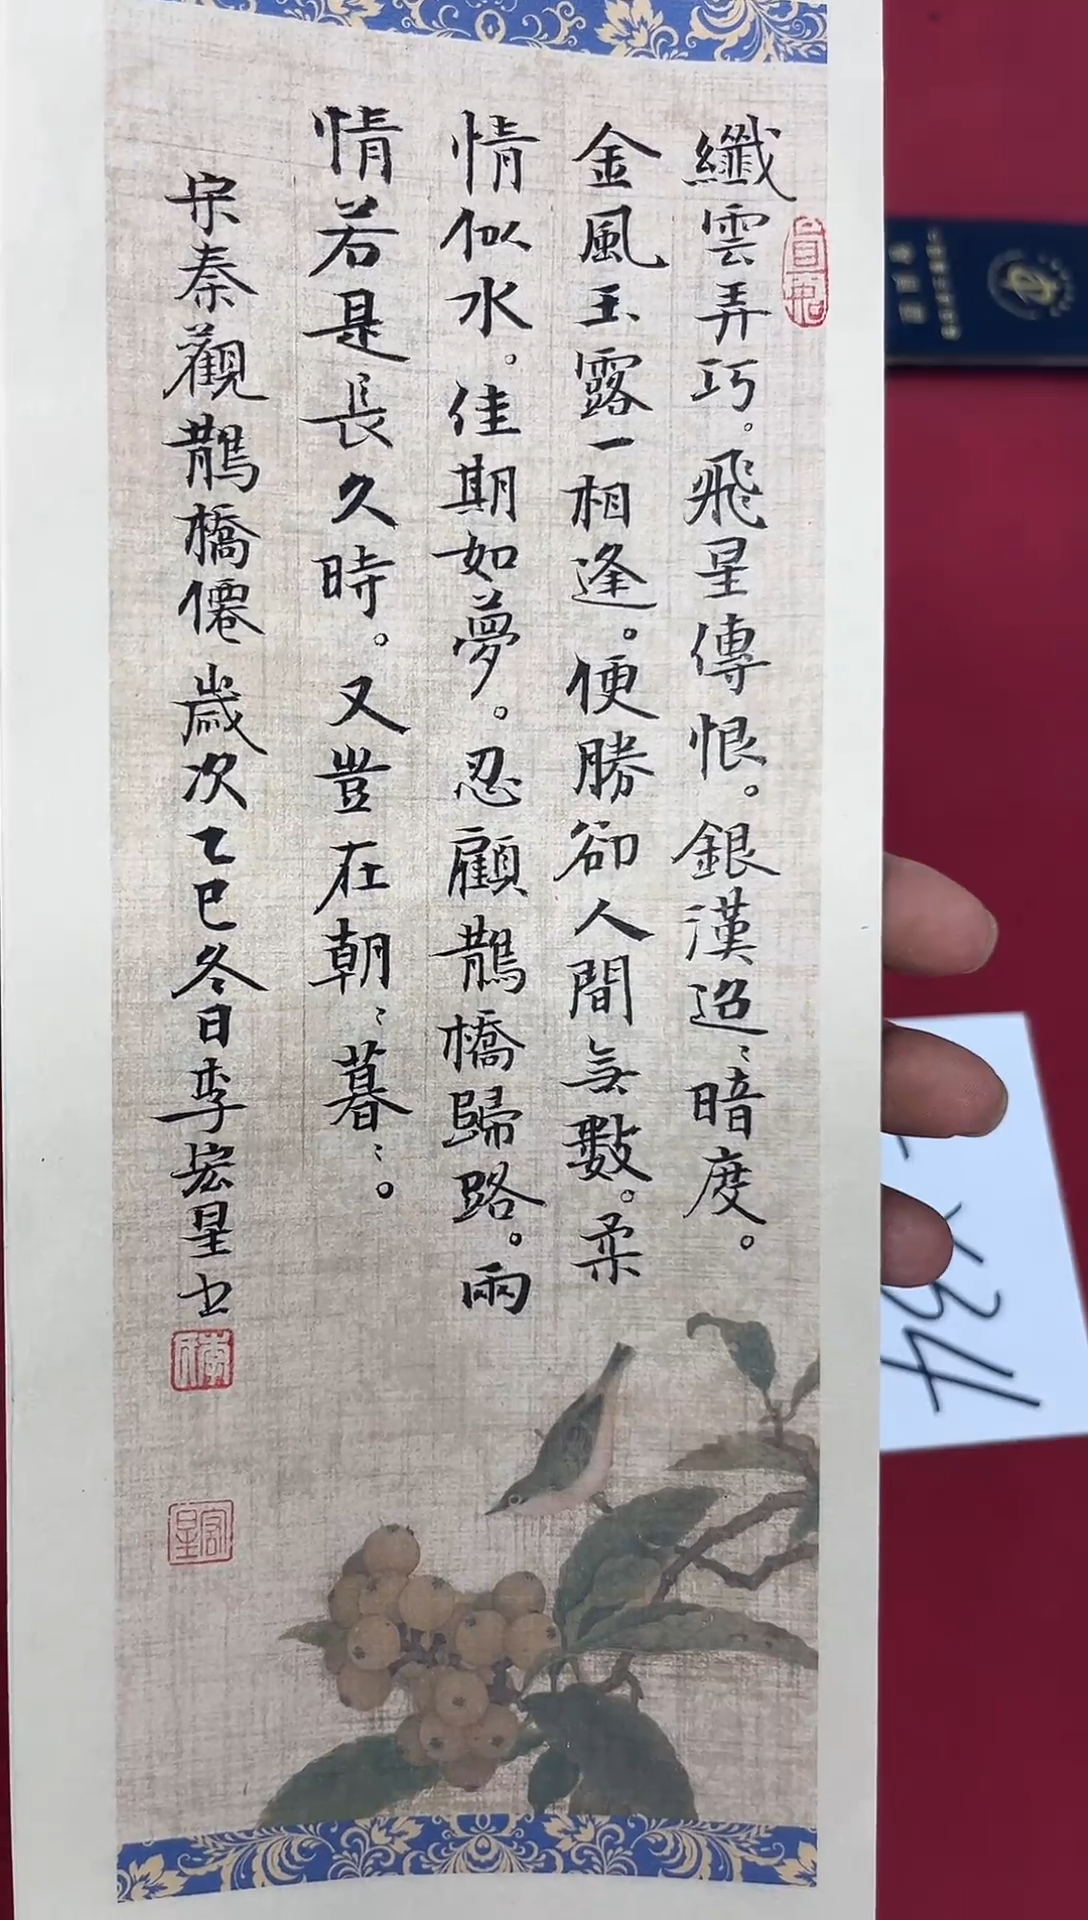 纖雲弄巧。飛星傳恨。銀漢迢〻暗度。
金風玉露一相逢。便勝卻人間無數。柔
情似水。佳期如夢。忍顧鵲橋歸路。兩
情若是長久時。又豈在朝〻暮〻。
宋秦觀鵲橋僊 歲次乙巳冬日李宏星書
宏星
34